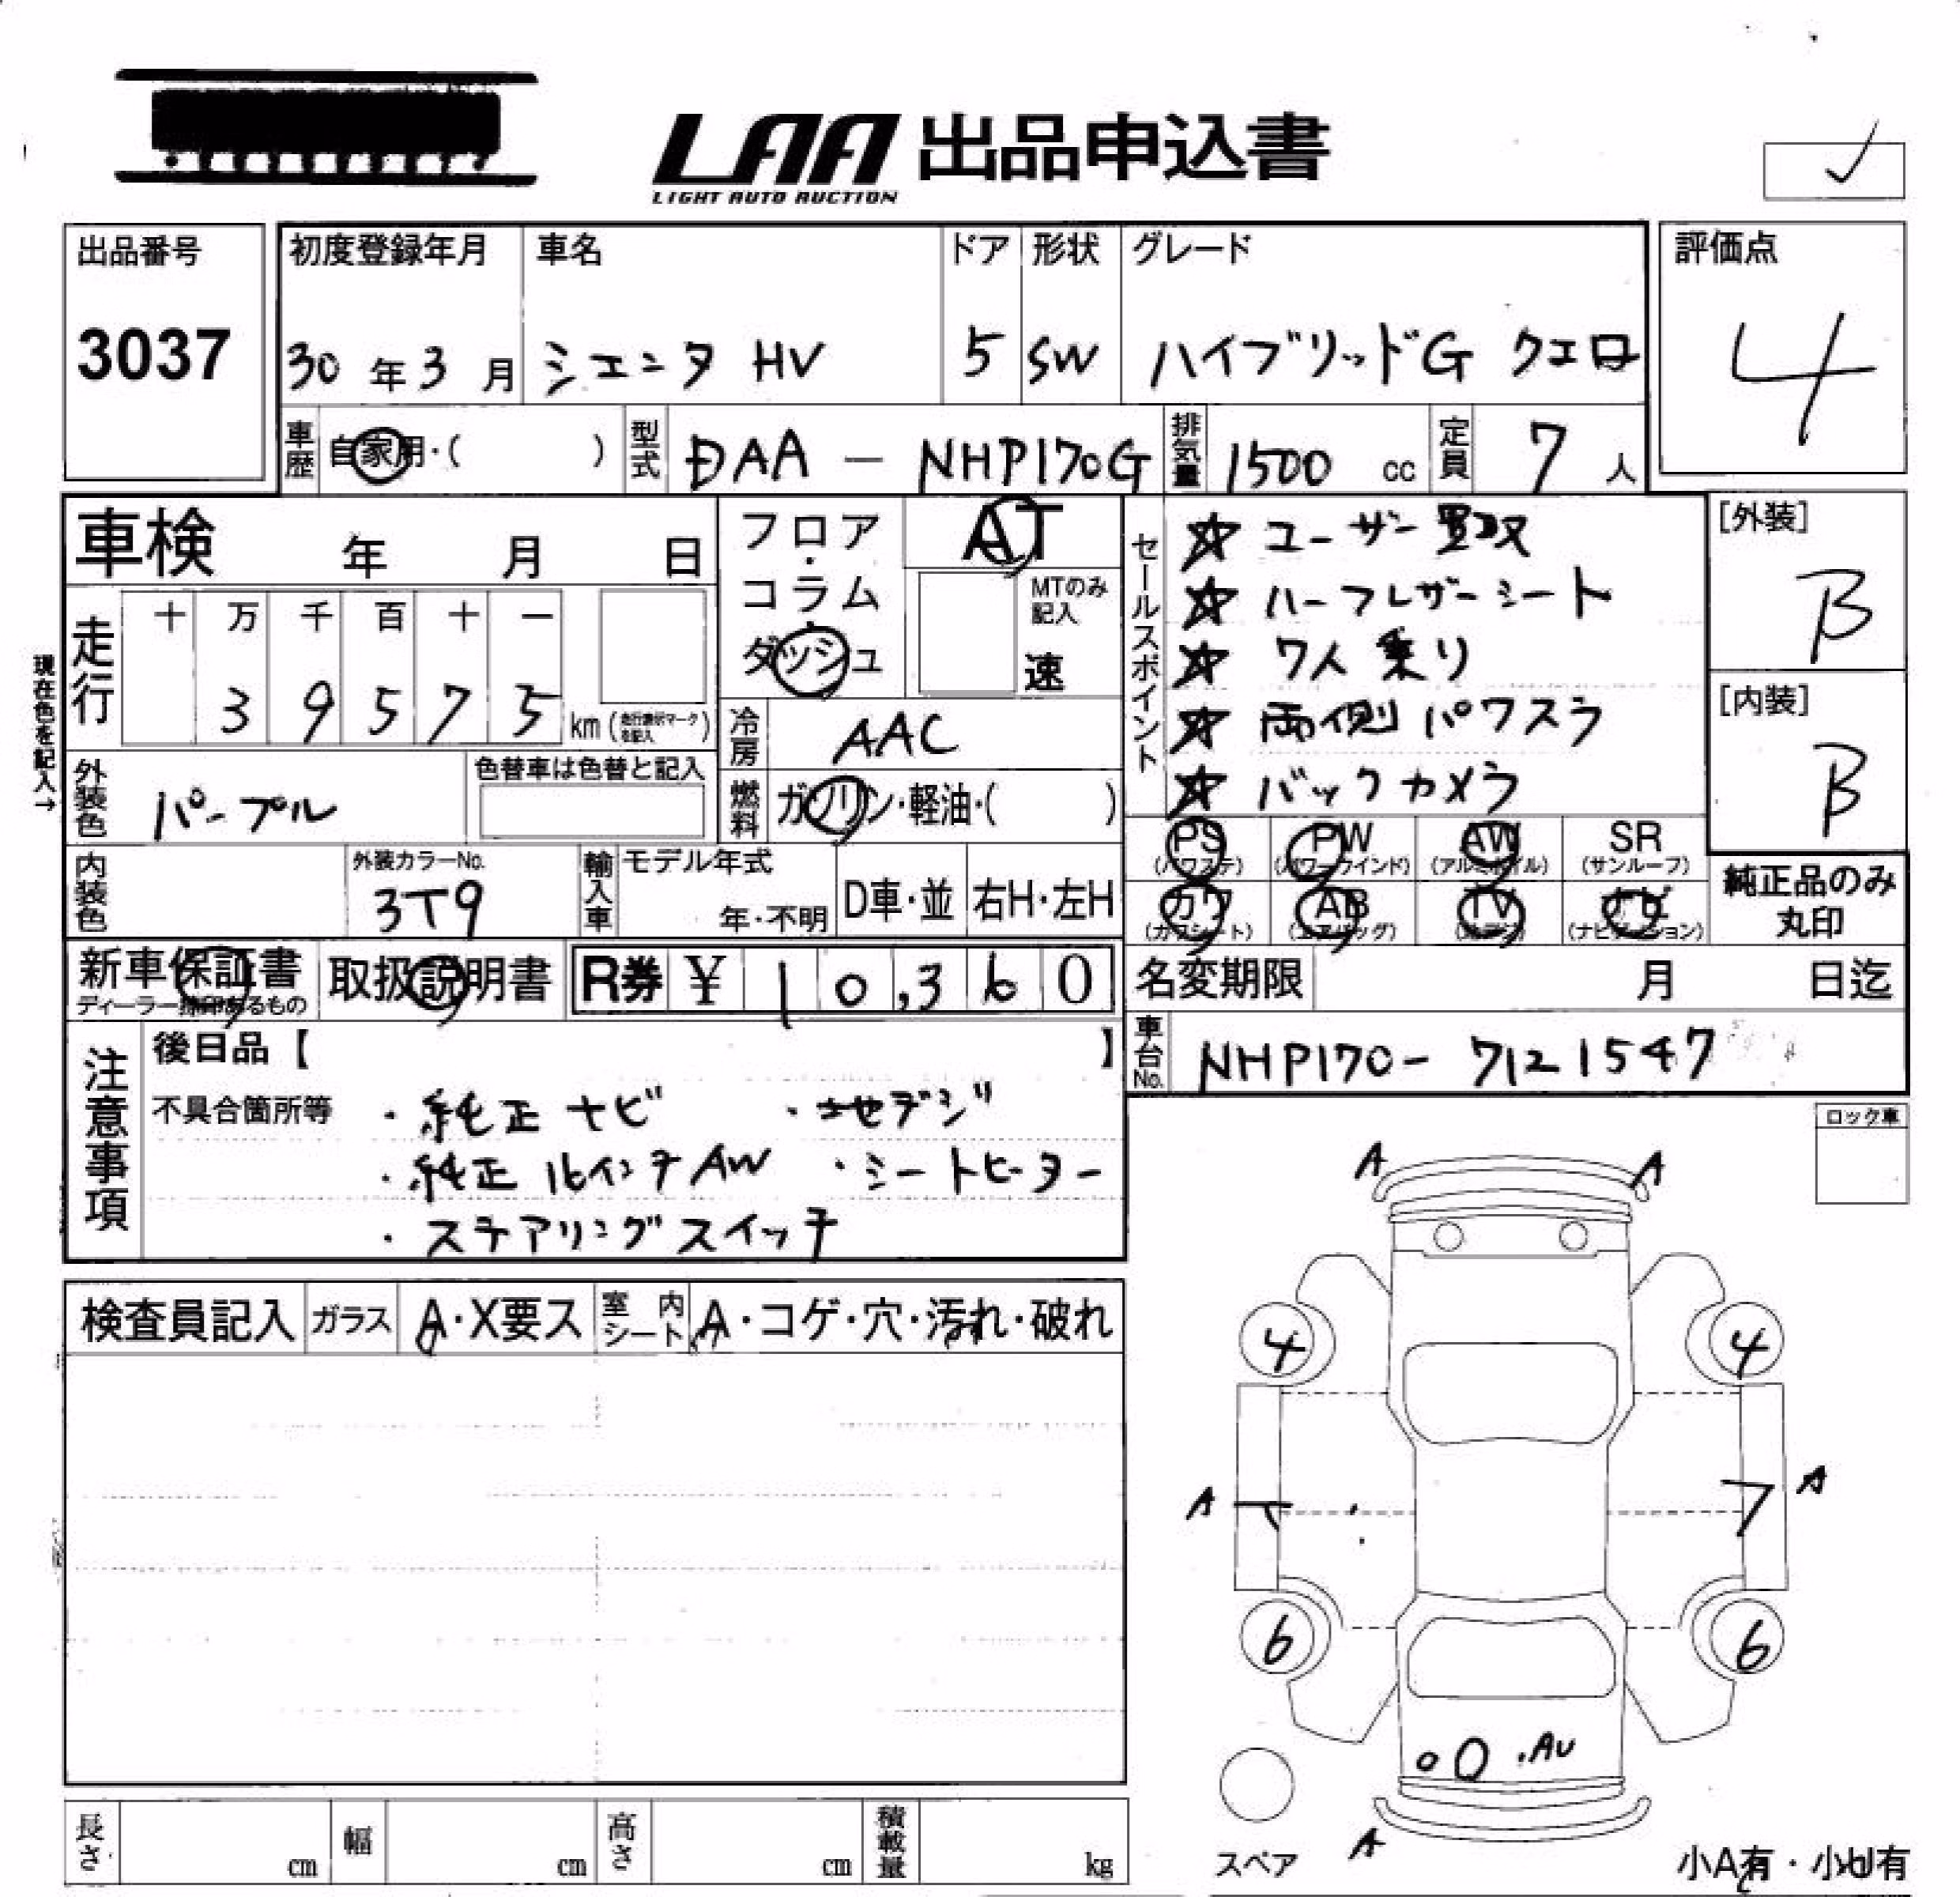 LAA 出品申込書
LIGHT AUTO AUCTION
✓
出品番号
3037
初度登録年月
30年3月
車名
シエンタ HV
ドア
5
形状
SW
グレード
ハイブリッドG クエロ
評価点
4
車歴
自家用・( )
型式
DAA - NHP170G
排気量
1500 cc
定員
7人
車検 年 月 日
フロア・コラム・ダッシュ
AT
MTのみ記入
速
セールスポイント
☆ ユーザー買取
☆ ハーフレザーシート
☆ 7人乗り
☆ 両側パワスラ
☆ バックカメラ
[外装]
B
[内装]
B
現在色を記入→
走行
十 万 千 百 十 一
3 9 5 7 5 km (走行表示マークを記入)
冷房
AAC
外装色
パープル
色替車は色替と記入
燃料
ガソリン・軽油・( )
内装色
外装カラーNo.
3T9
輸入車
モデル年式
年・不明
D車・並
右H・左H
PS (パワステ)
PW (パワーウインド)
AW (アルミホイル)
SR (サンルーフ)
カワ (カワシート)
AB (エアバッグ)
TV
ナビ (ナビゲーション)
純正品のみ丸印
新車保証書
取扱説明書
R券 ¥ 10,360
名変期限 月 日迄
車台No.
NHP170- 7121547
注意事項
後日品【 】
不具合箇所等
・純正ナビ ・地デジ
・純正16インチAW ・シートヒーター
・ステアリングスイッチ
ロック車
検査員記入
ガラス
A・X要ス
室内シート
A・コゲ・穴・汚れ・破れ
A A
4 4
A A
6 6
AU
A
スペア
小A有・小U有
長さ cm
幅 cm
高さ cm
積載量 kg